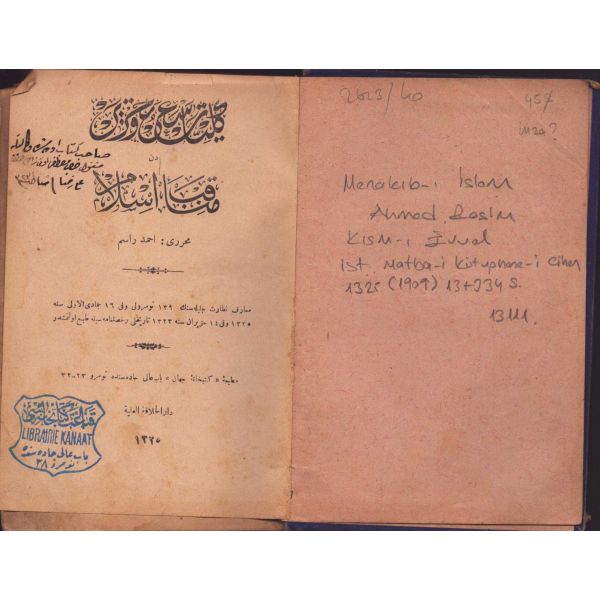 كليات سعي و غيرت
دن
مناقب اسلام
محرری : احمد راسم
معارف نظارت جليله سنك ١٣٩ نومرولی و فی ١٦ جمادی الاولی سنه
١٣٢٥ و فی ١٤ حزیران سنه ١٣٢٣ تاريخلی رخصتنامه سيله طبع اولنمشدر
مطبعهٔ « كتبخانهٔ جهان » باب عالی جاده سنده نومرو ٢٣-٣٢
دار الخلافة العلية
١٣٢٥
صاحب كتاب
قناعت كتابخانه سی
LIBRAIRIE KANAAT
باب عالی جاده سنده
نومرو ٣٨
2623/40
457
imza?
Menakıb-ı İslam
Ahmed Rasim
Kısm-ı Evvel
İst. Matba-i Kütüphane-i Cihan
1325 (1909) 13+334 S.